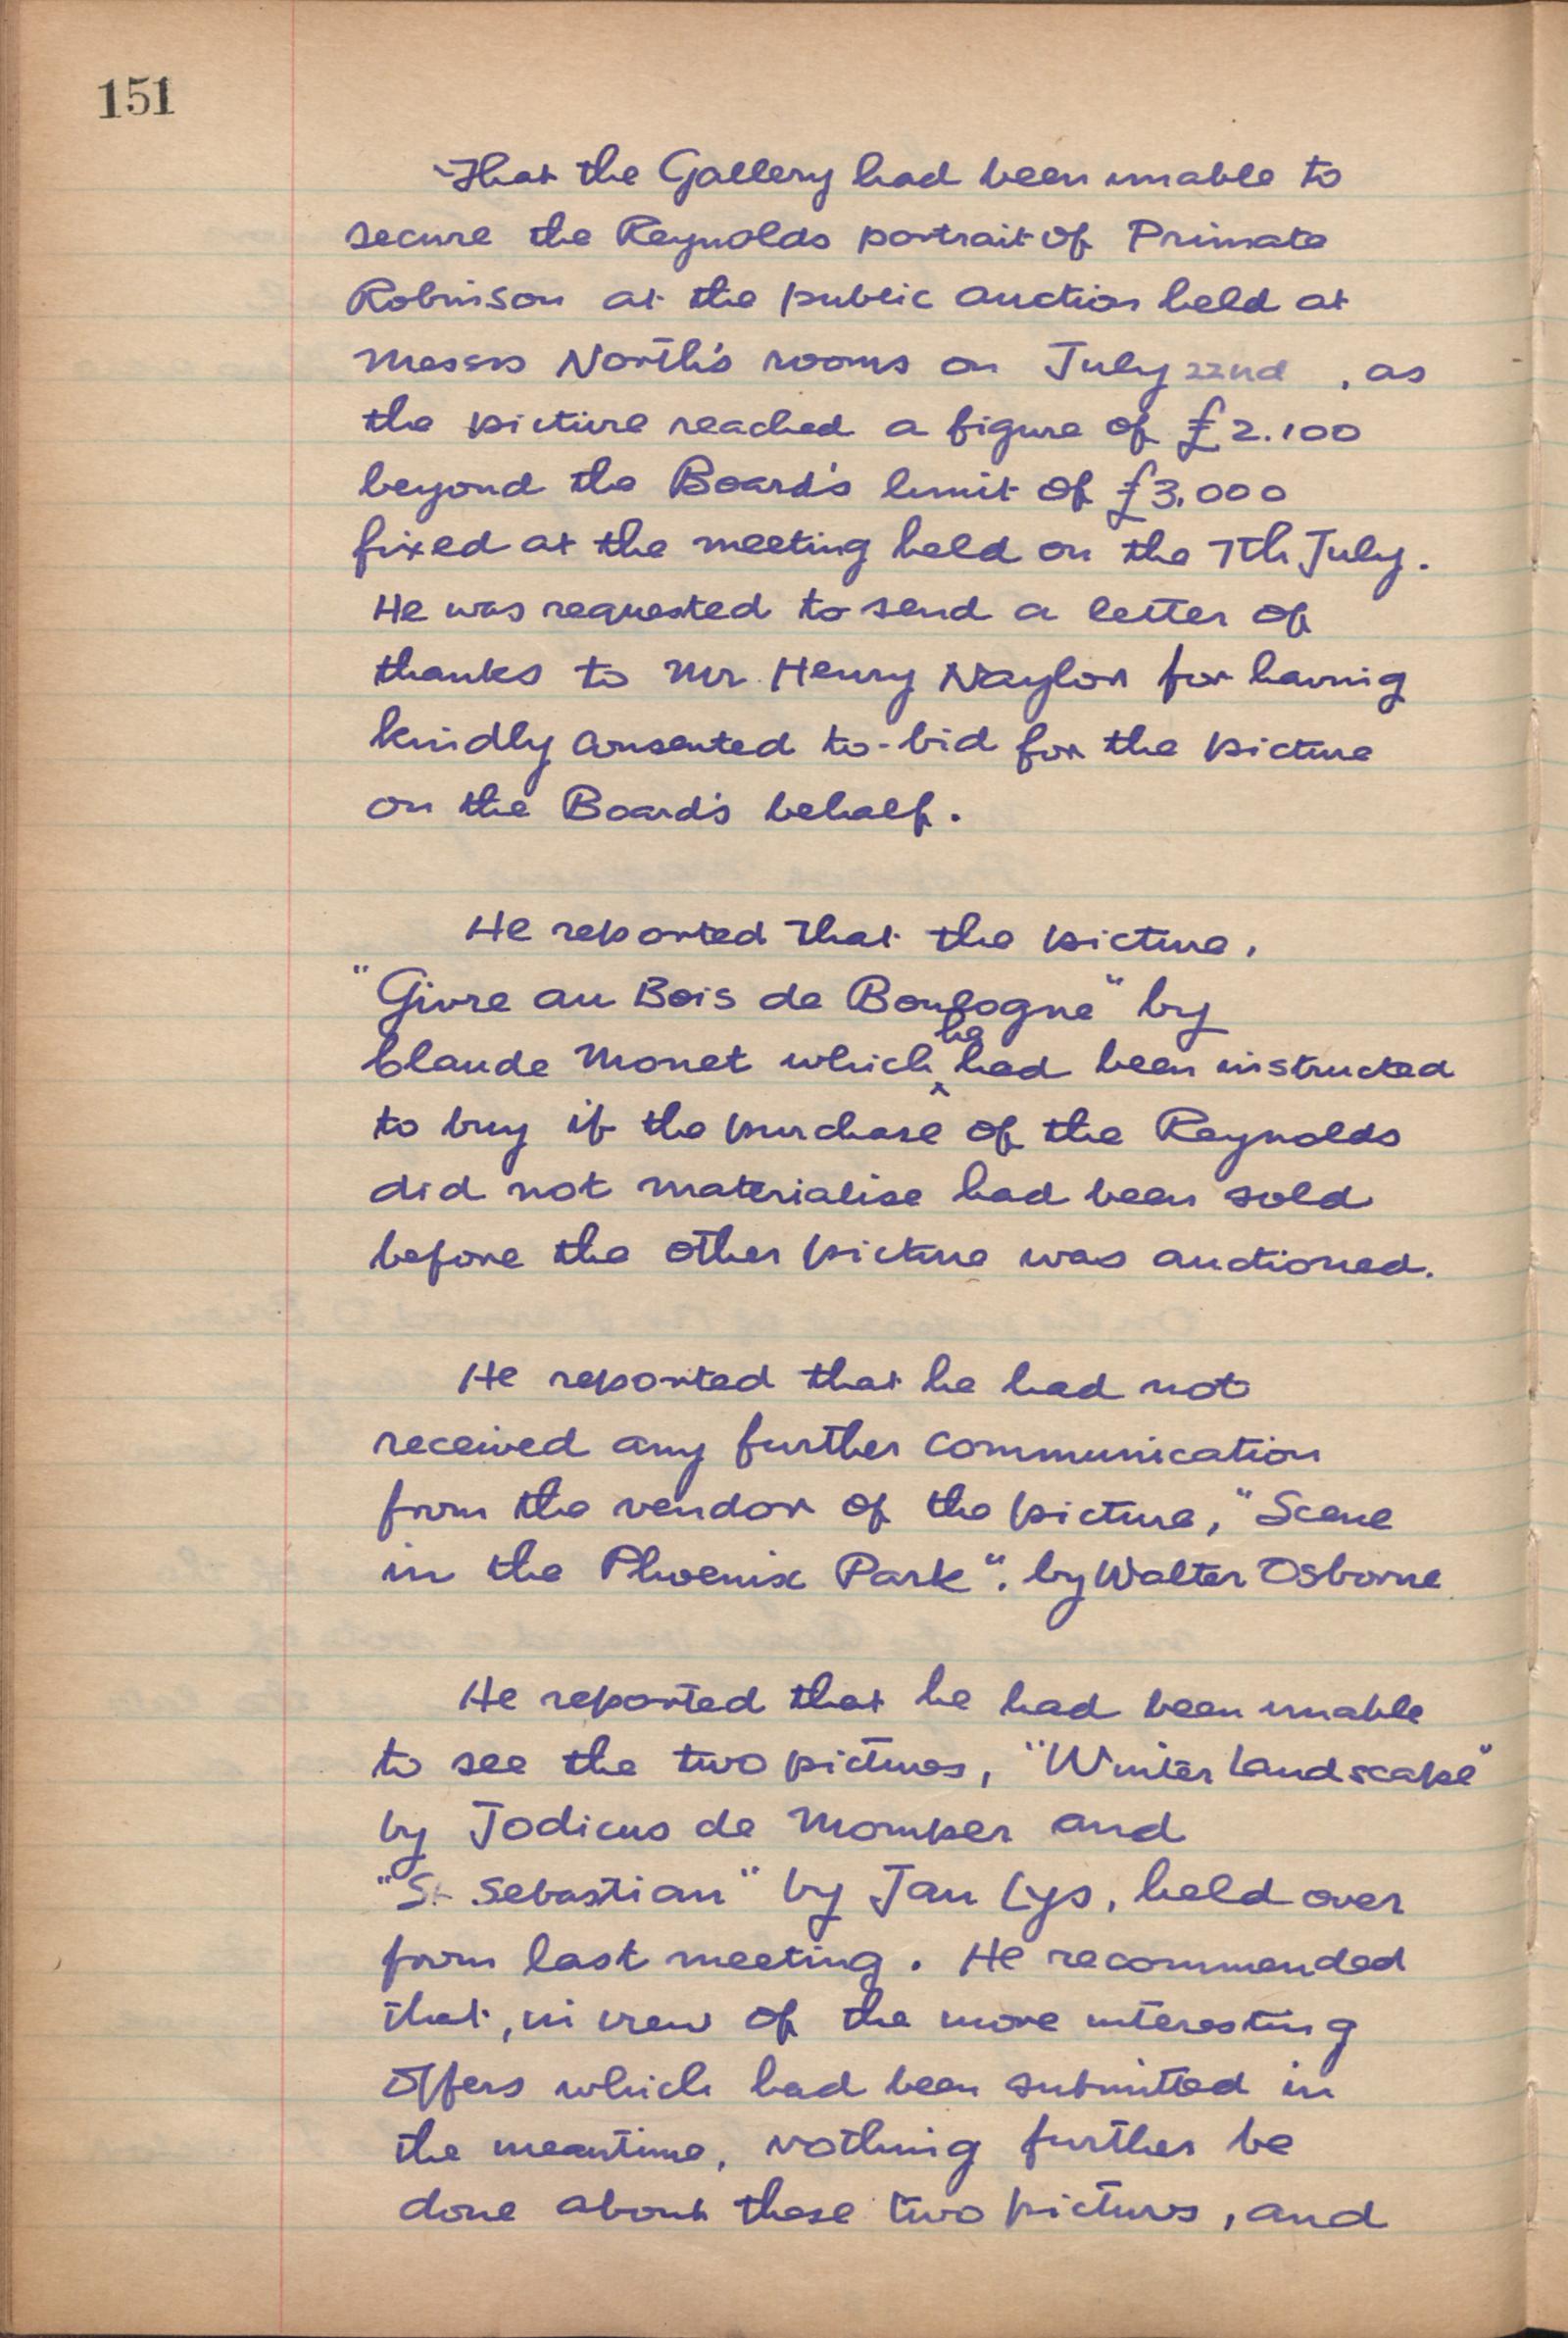 151
That the Gallery had been unable to
secure the Reynolds portrait of Primate
Robinson at the public auction held at
Messrs North's rooms on July 22nd , as
the picture reached a figure of £2.100
beyond the Board's limit of £3,000
fixed at the meeting held on the 7th July.
He was requested to send a letter of
thanks to Mr. Henry Naylor for having
kindly consented to bid for the picture
on the Board's behalf.
He reported that the picture,
"Givre au Bois de Boulogne" by
he
Claude Monet which ‸ had been instructed
to buy if the purchase of the Reynolds
did not materialise had been sold
before the other picture was auctioned.
He reported that he had not
received any further communication
from the vendor of the picture, "Scene
in the Phoenix Park", by Walter Osborne
He reported that he had been unable
to see the two pictures, "Winter Landscape"
by Jodicus de Momper and
"St Sebastian" by Jan Lys, held over
from last meeting. He recommended
that, in view of the more interesting
offers which had been submitted in
the meantime, nothing further be
done about these two pictures, and